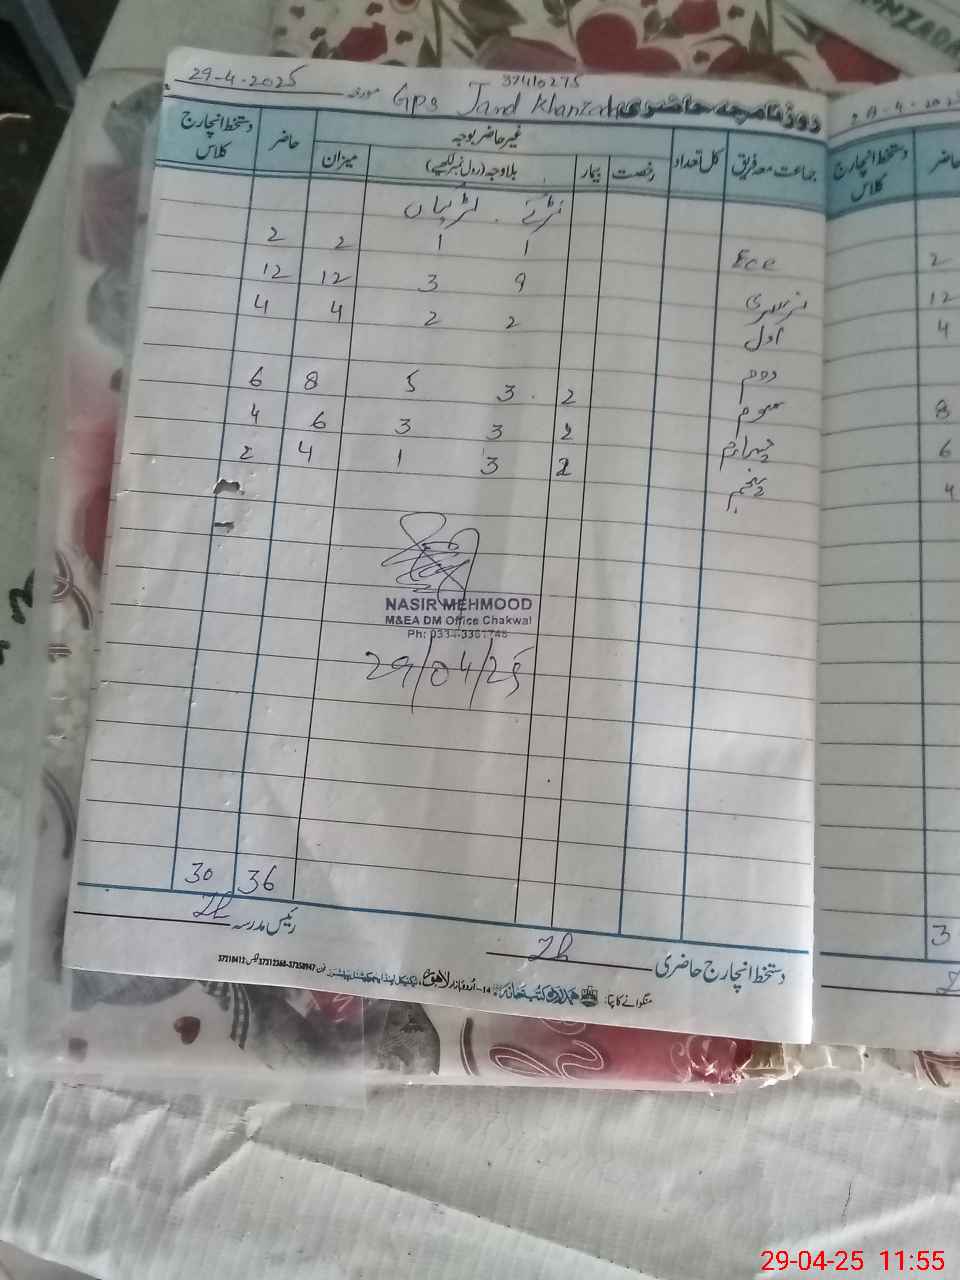 29-4-2025 مورخہ
37410275
GPS Jand Khanzada روزنامچہ حاضری
جماعت معہ فریق کل تعداد رخصت بیمار غیر حاضر بوجہ بلاوجہ (رول نمبر لکھیے) میزان حاضر دستخط انچارج کلاس
لڑکے . لڑکیاں
Ece 1 1 2 2
نرسری 9 3 12 12
اول 2 2 4 4
دوم
سوم 2 3 5 8 6
چہارم 2 3 3 6 4
پنجم 2 3 1 4 2
NASIR MEHMOOD
M&EA DM Office Chakwal
29/04/25
36 30
رئیس مدرسہ
دستخط انچارج حاضری
منگوانے کا پتا:
14-اُردو بازار لاہور
دستخط انچارج کلاس حاضر
2
12
4
8
6
4
29-04-25 11:55